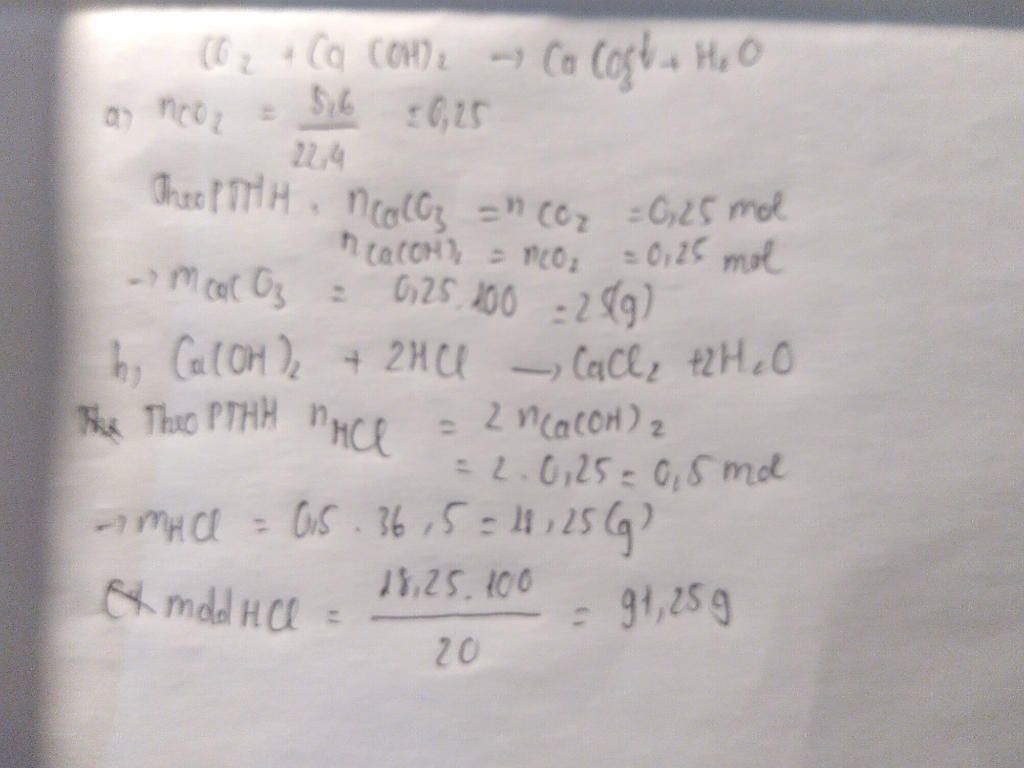 CO2 + Ca(OH)2 → CaCO3↓ + H2O
a, nCO2 = 5,6 / 22,4 = 0,25
Theo PTHH . nCaCO3 = nCO2 = 0,25 mol
nCa(OH)2 = nCO2 = 0,25 mol
→ mCaCO3 = 0,25.100 = 25(g)
b, Ca(OH)2 + 2HCl → CaCl2 + 2H2O
Theo PTHH nHCl = 2 nCa(OH)2
= 2.0,25 = 0,5 mol
→ mHCl = 0,5 . 36,5 = 18,25(g)
mddHCl = 18,25.100 / 20 = 91,25g